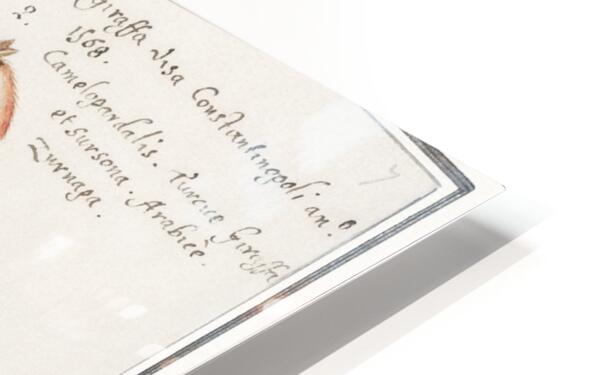 Giraffa visa Constantinopoli an.º
1568.
Camelopardalis. Turcice Giraffa
et Sursona. Arabicè.
Zurnapa.
2.
7